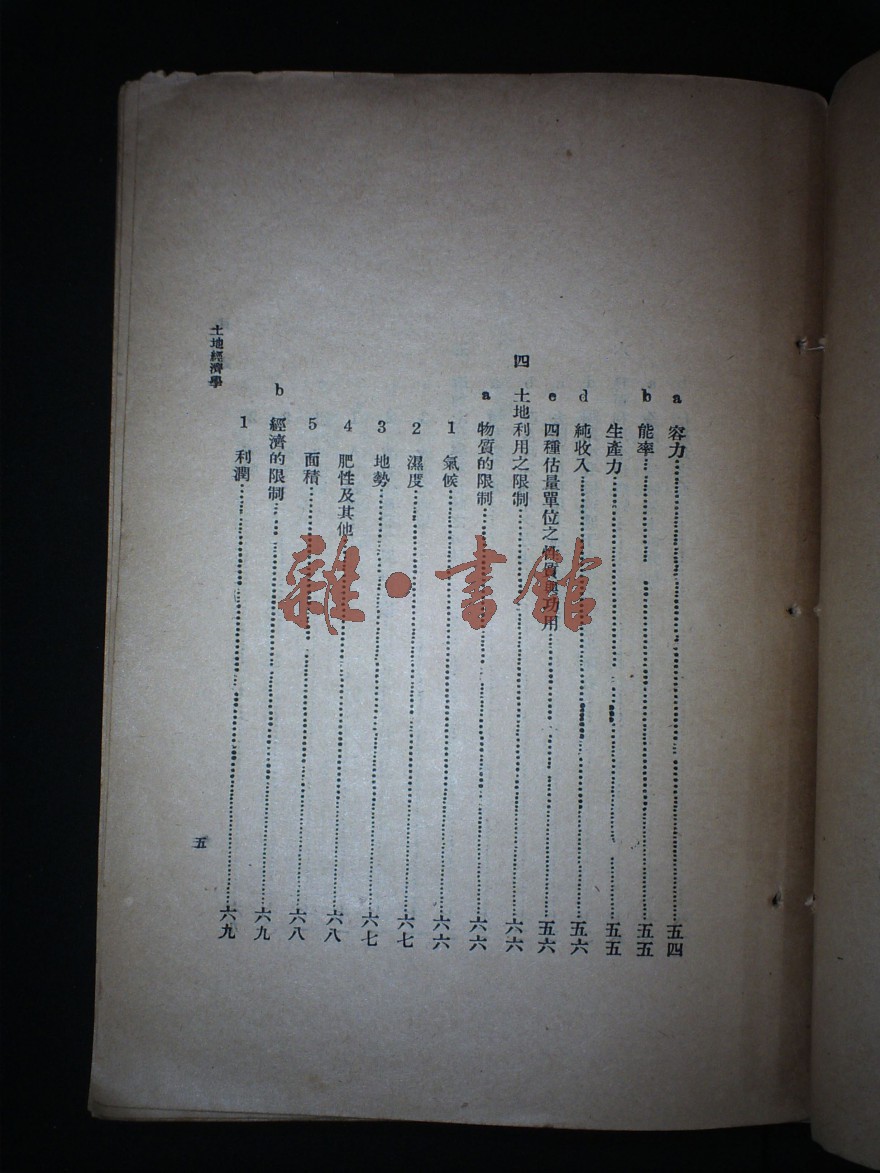 a 容力……五四
b 能率……五五
生產力……五五
d 純收入……五六
e 四種估量單位之性質與功用……五六
四 土地利用之限制……六六
a 物質的限制……六六
1 氣候……六六
2 濕度……六七
3 地勢……六七
4 肥性及其他……六八
5 面積……六八
b 經濟的限制……六九
1 利潤……六九
土地經濟學
五
雜·書館